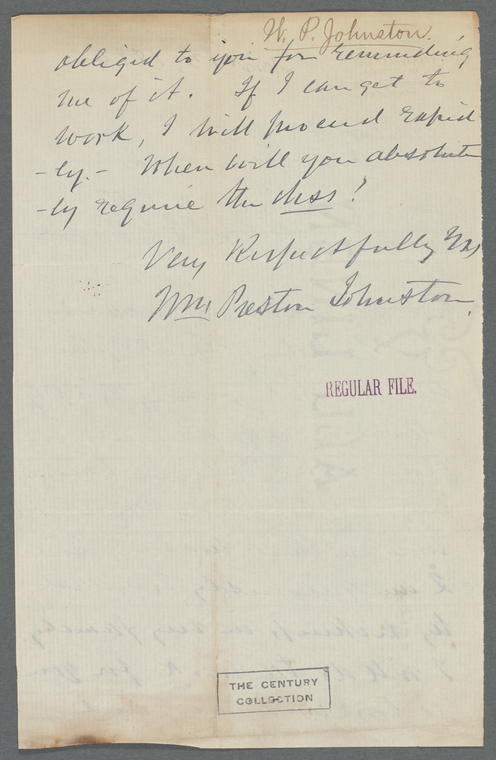 W. P. Johnston.
obliged to you for reminding
me of it. If I can get to
work, I will proceed rapid
-ly. - When will you absolute
-ly require the Mss?
Very Respectfully Yrs
Wm Preston Johnston.
REGULAR FILE.
THE CENTURY
COLLECTION